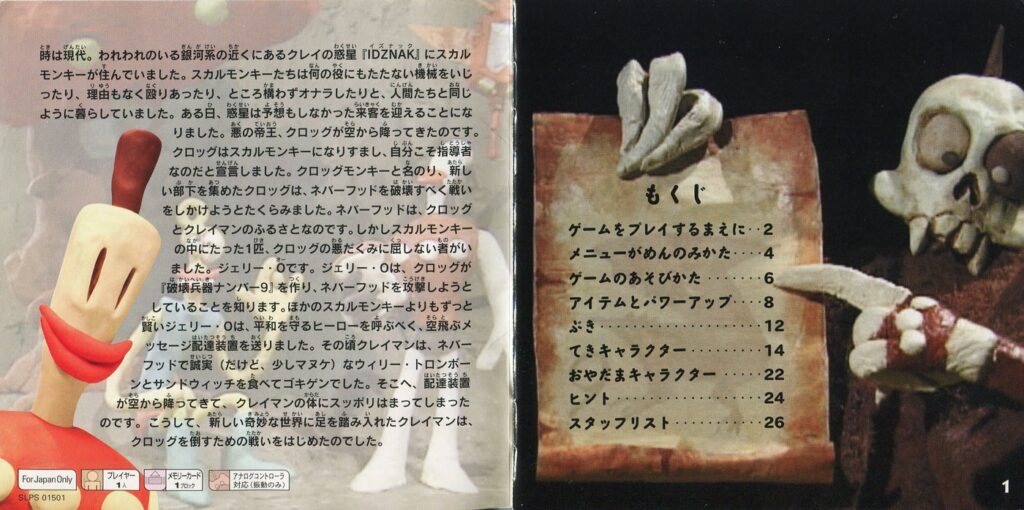 時は現代。われわれのいる銀河系の近くにあるクレイの惑星『IDZNAK』にスカル
モンキーが住んでいました。スカルモンキーたちは何の役にもたたない機械をいじ
ったり、理由もなく殴りあったり、ところ構わずオナラしたりと、人間たちと同じ
ように暮らしていました。ある日、惑星は予想もしなかった来客を迎えることにな
りました。悪の帝王、クロッグが空から降ってきたのです。
クロッグはスカルモンキーになりすまし、自分こそ指導者
なのだと宣言しました。クロッグモンキーと名のり、新し
い部下を集めたクロッグは、ネバーフッドを破壊すべく戦い
をしかけようとたくらみました。ネバーフッドは、クロッグ
とクレイマンのふるさとなのです。しかしスカルモンキー
の中にたった1匹、クロッグの悪だくみに屈しない者がい
ました。ジェリー・Oです。ジェリー・Oは、クロッグが
『破壊兵器ナンバー9』を作り、ネバーフッドを攻撃しようと
していることを知ります。ほかのスカルモンキーよりもずっと
賢いジェリー・Oは、平和を守るヒーローを呼ぶべく、空飛ぶメ
ッセージ配達装置を送りました。その頃クレイマンは、ネバー
フッドで誠実（だけど、少しマヌケ）なウィリー・トロンボー
ンとサンドウィッチを食べてゴキゲンでした。そこへ、配達装置
が空から降ってきて、クレイマンの体にスッポリはまってしまった
のです。こうして、新しい奇妙な世界に足を踏み入れたクレイマンは、
クロッグを倒すための戦いをはじめたのでした。
For Japan Only
プレイヤー
1人
メモリーカード
1ブロック
アナログコントローラ
対応(振動のみ)
SLPS 01501
もくじ
ゲームをプレイするまえに‥2
メニューがめんのみかた‥‥4
ゲームのあそびかた‥‥‥‥6
アイテムとパワーアップ‥‥8
ぶき‥‥‥‥‥‥‥‥‥12
てきキャラクター‥‥‥‥14
おやだまキャラクター‥‥22
ヒント‥‥‥‥‥‥‥‥24
スタッフリスト‥‥‥‥‥26
1